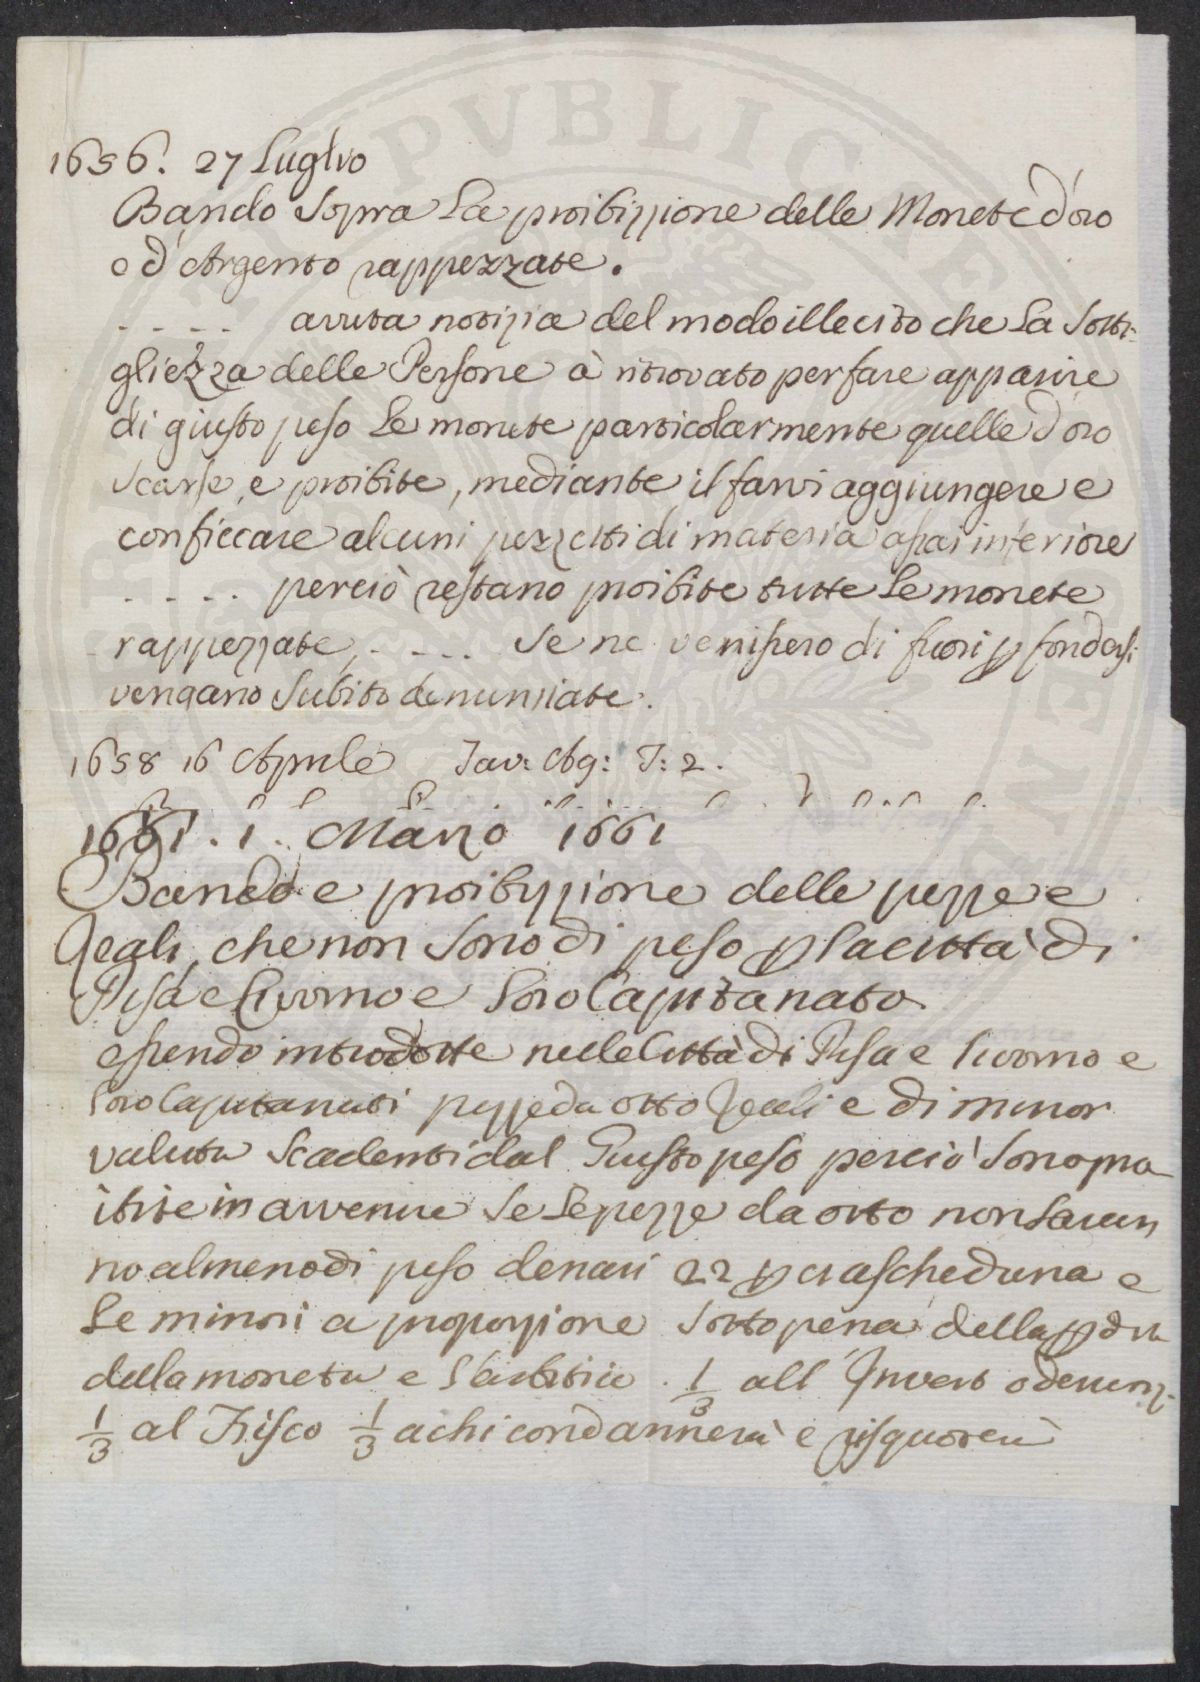 1656. 27 Luglio
Bando Sopra La proibizzione delle Monete d'oro
o d'Argento rappezzate.
- - - - avuta notizia del modo illecito che La Sotti-
gliezza delle Persone à ritrovato per fare apparire
di giusto peso Le monete particolarmente quelle d'oro
Scarse, e proibite, mediante il farvi aggiungere e
conficcare alcuni pezzetti di materia assai inferiore
- - - - perciò restano proibite tutte Le monete
rappezzate, - - - - Se ne venissero di fuori p fondersi
vengano Subito denunziate.
1658 16 Aprile Tav: Ag: T: 2.
1661. 1. Marzo 1661
Bando e proibizzione delle pezze e
Reali, che non Sono di peso p La città di
Pisa e Livorno e Loro Capitanato
essendo introdotte nelle Città di Pisa e Livorno e
Loro Capitanati pezze da otto Reali e di minor
valuta Scadenti dal Giusto peso perciò Sono proi
ibite in avvenire Se Le pezze da otto non Saran
no almeno di peso denari 22 p ciascheduna e
Le minori a proporzione Sotto pena della pdita
della moneta e L'arbitrio. 1/3 all' Invent o denunz.
1/3 al Fisco 1/3 a chi condannerà e risquoterà